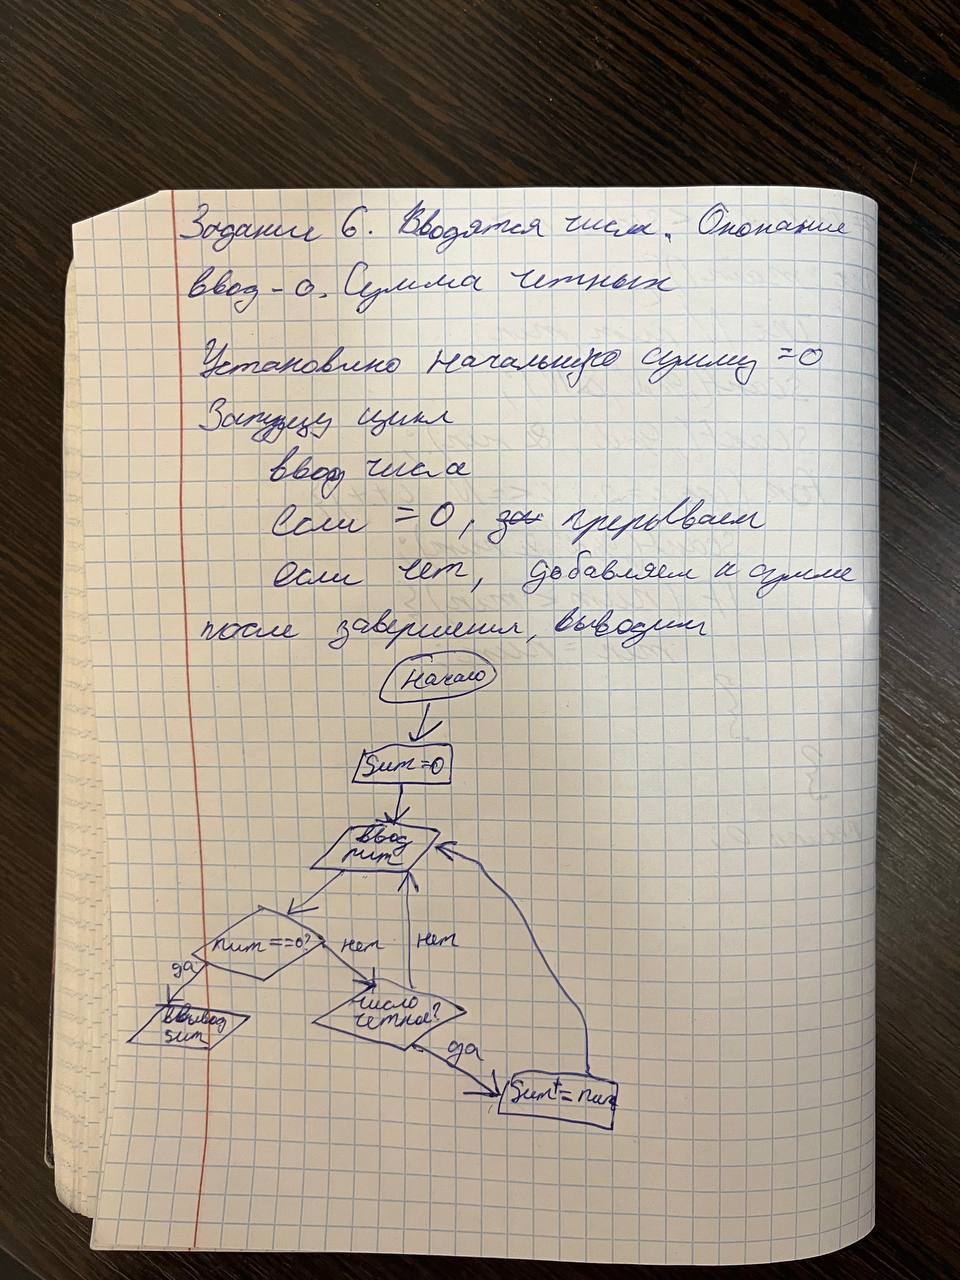 Задание 6. Вводятся числа. Окончание
ввод - 0. Сумма четных
Установлю начальную сумму = 0
Запущу цикл
ввод числа
если = 0, прерываем
если чет, добавляем к сумме
после завершения, выводим
Начало
Sum = 0
ввод
num
num == 0?
нет
нет
да
число
четное?
вывод
sum
да
Sum += num